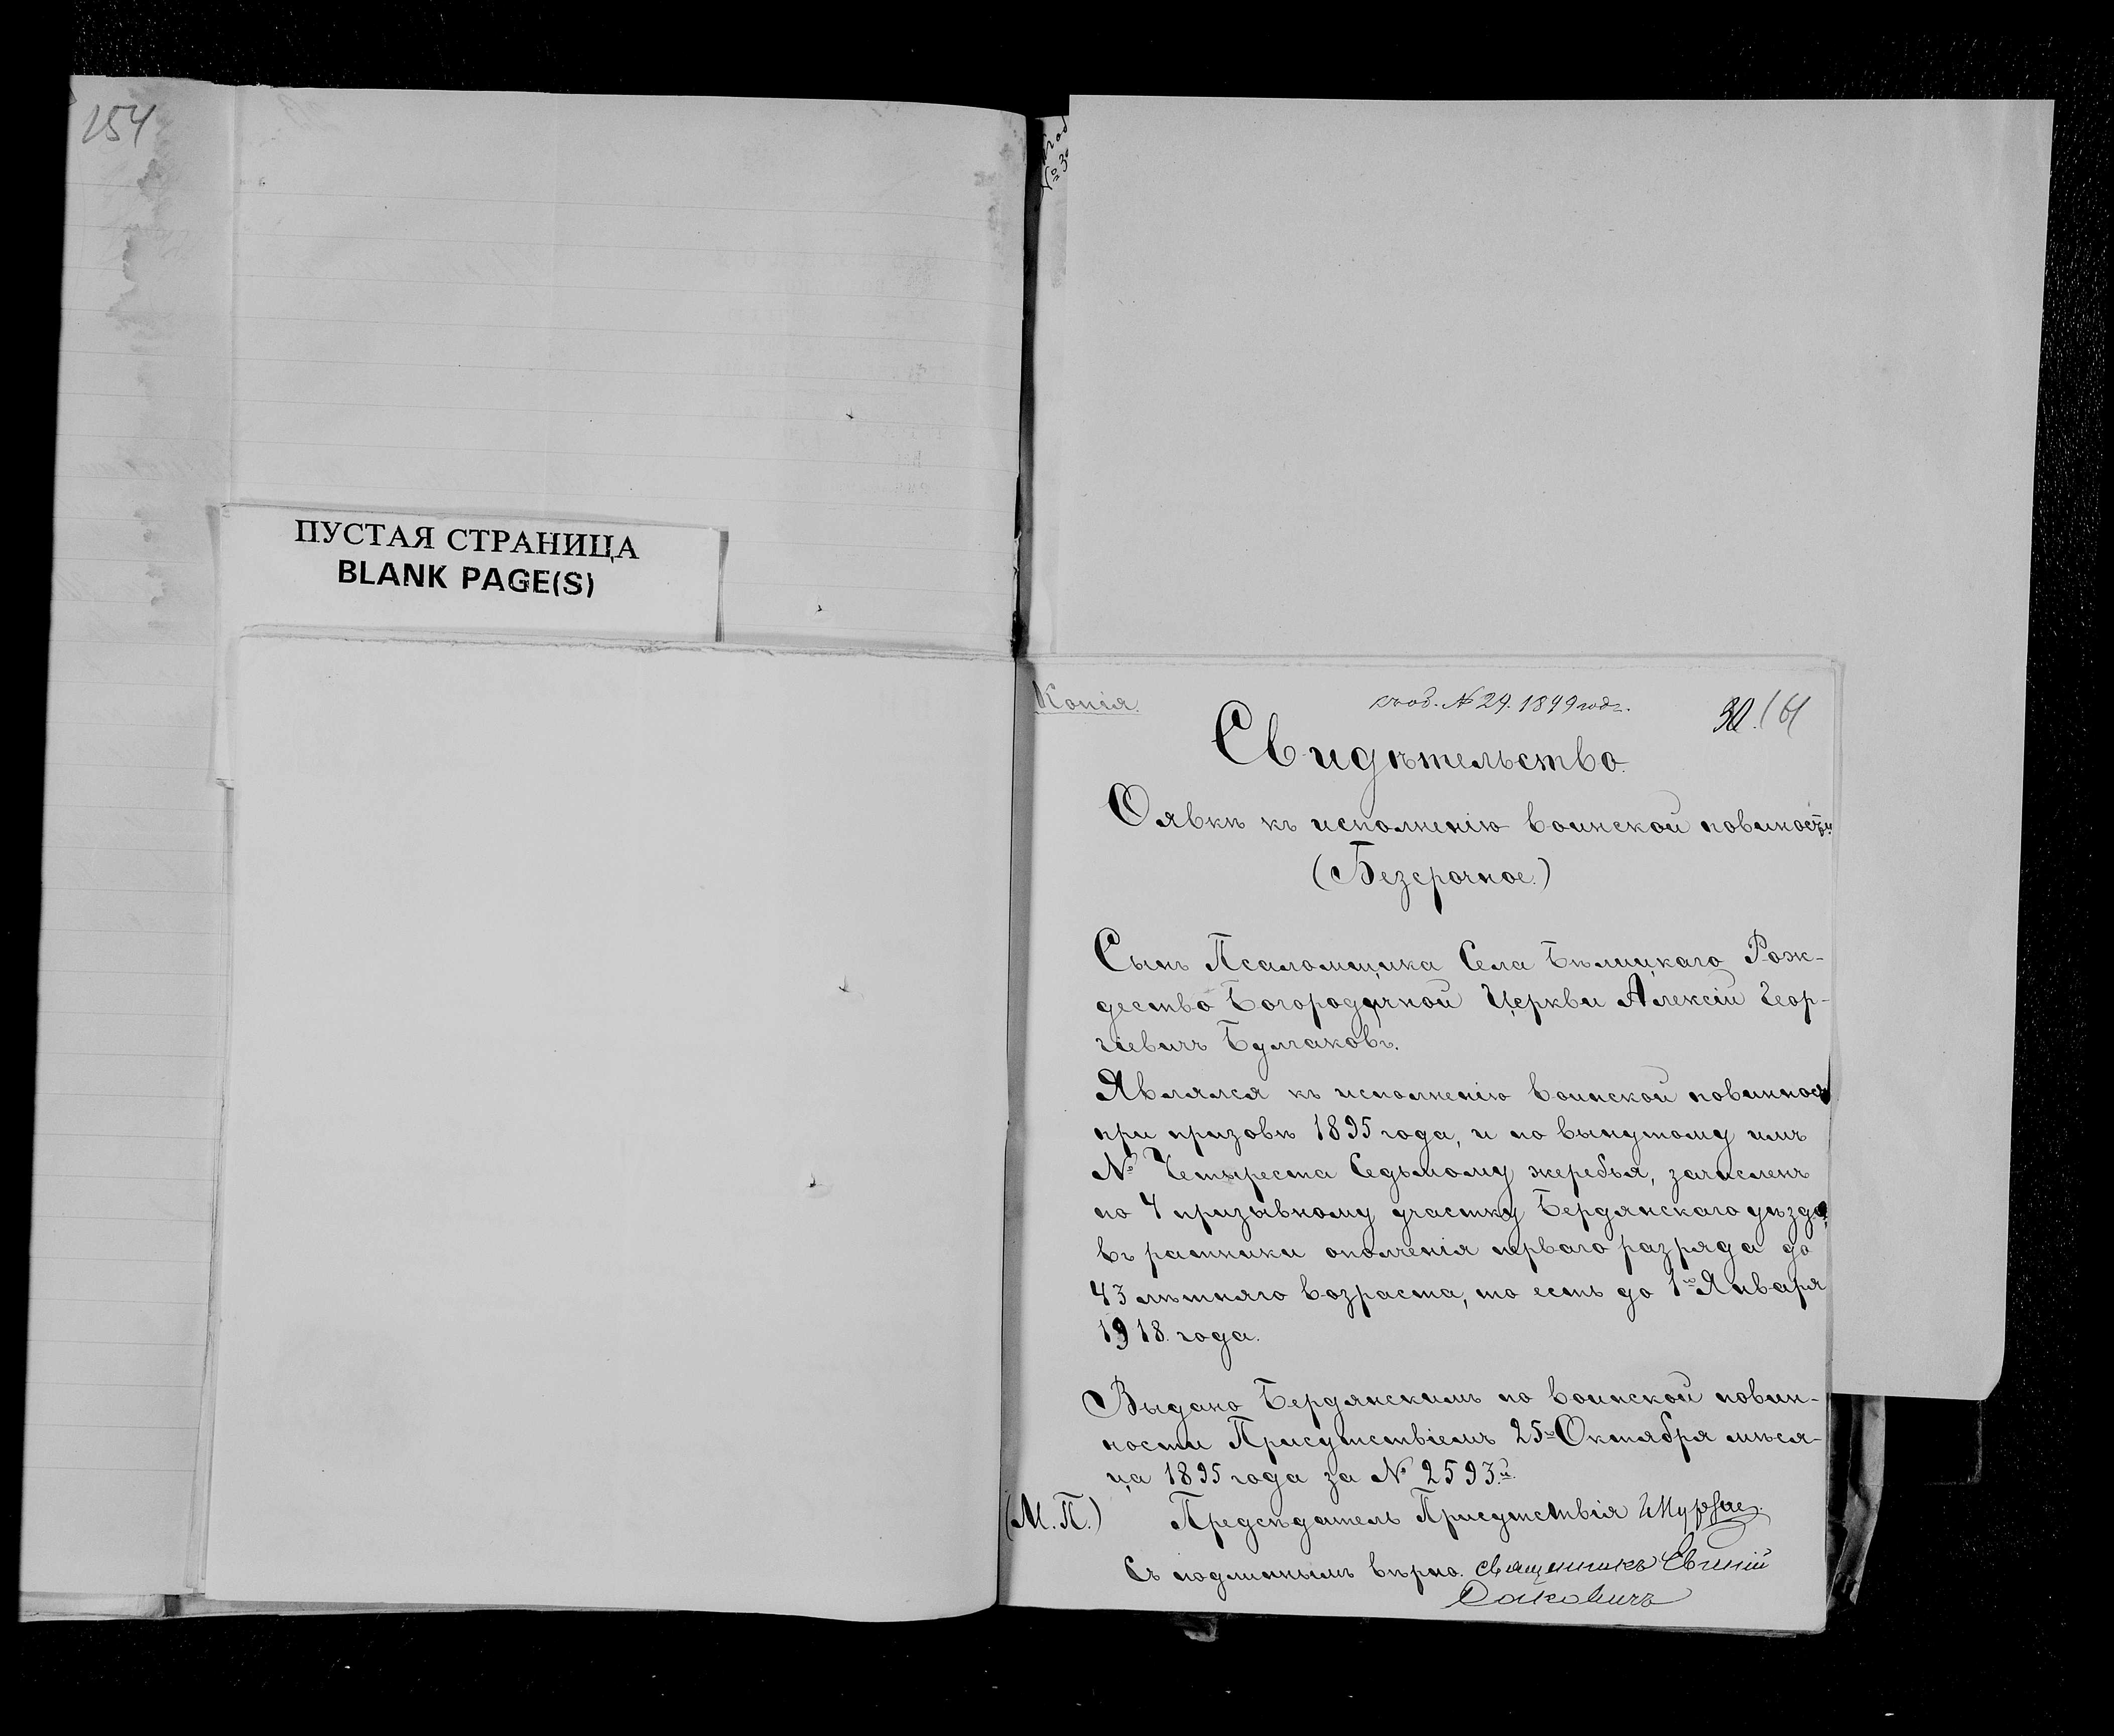 154
ПУСТАЯ СТРАНИЦА
BLANK PAGE(S)
Копія.
№ 29. 1899 года.
30. 161
Свидѣтельство.
О явкѣ къ исполненію воинской повиности
(Безсрочное.)
Сынъ Псаломщика Села Бѣлицкаго Рож-
дество Богородичной Церкви Алексій Геор-
гіевичъ Булгаковъ.
Являлся къ исполненію воинской повинност
при призовѣ 1895 года, и по вынутому имъ
№ Четыреста Седьмому жеребья, зачисленъ
по 4 призывному участку Бердянскаго уѣзда,
въ ратники ополченія перваго разряда до
43 лѣтняго возраста, то есть до 1го Января
1918. года.
Выдано Бердянскимъ по воинской повин-
ности Присутствіемъ 25го Октября мѣся-
ца 1895 года за № 2593й.
(М. П.) Предсѣдатель Присутствія
Съ подлиннымъ вѣрно. Священникъ Евгеній